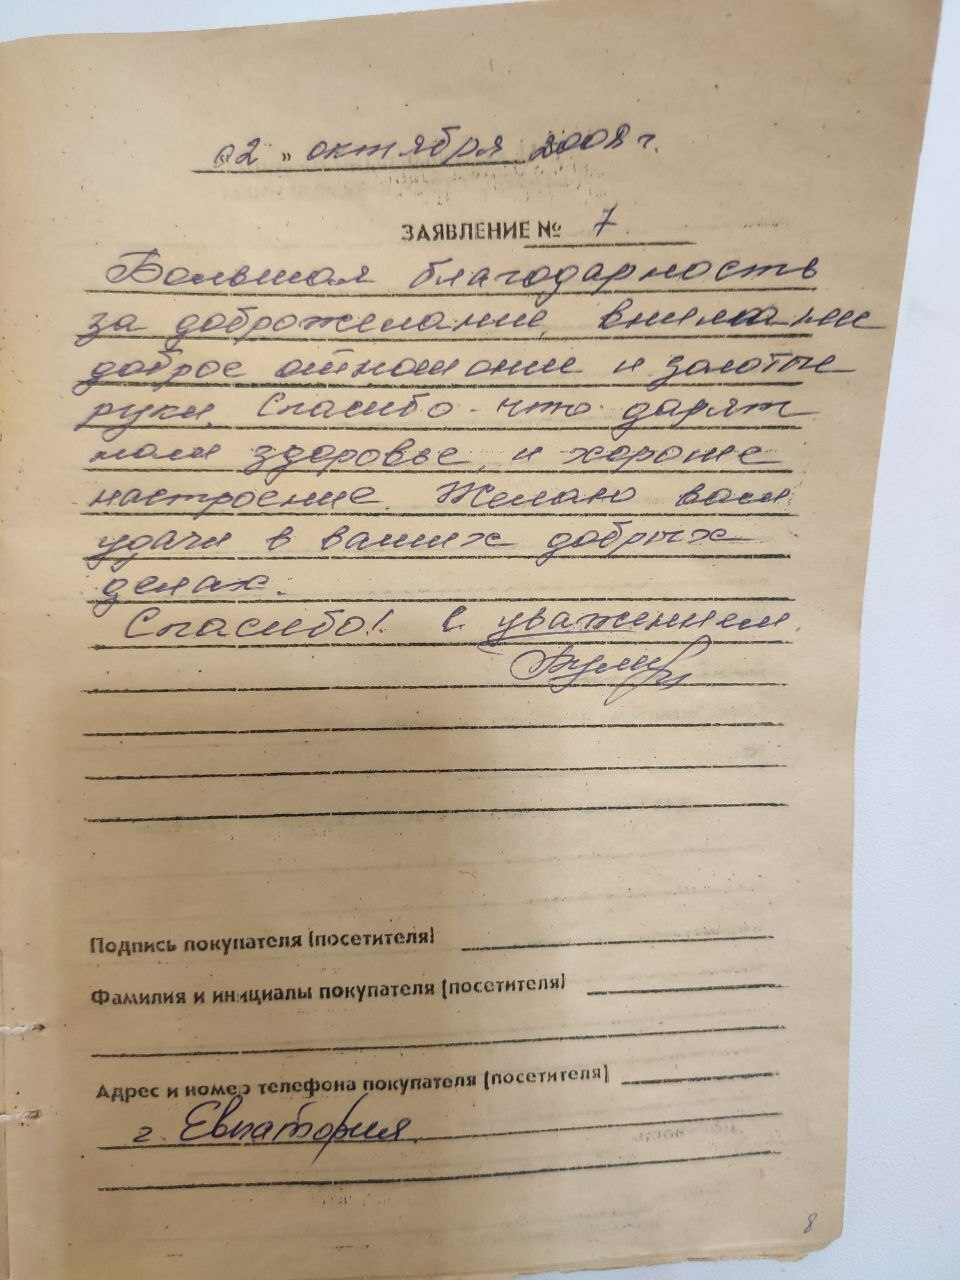 «02» октября 2008 г.
ЗАЯВЛЕНИЕ № 7
Большая благодарность
за доброжелание, внимание
доброе отношение и золотые
руки. Спасибо что дарят
нам здоровье, и хорошее
настроение. Желаю вам
удачи в ваших добрых
делах.
Спасибо! С уважением.
Подпись покупателя (посетителя)
Фамилия и инициалы покупателя (посетителя)
Адрес и номер телефона покупателя (посетителя)
г. Евпатория
8